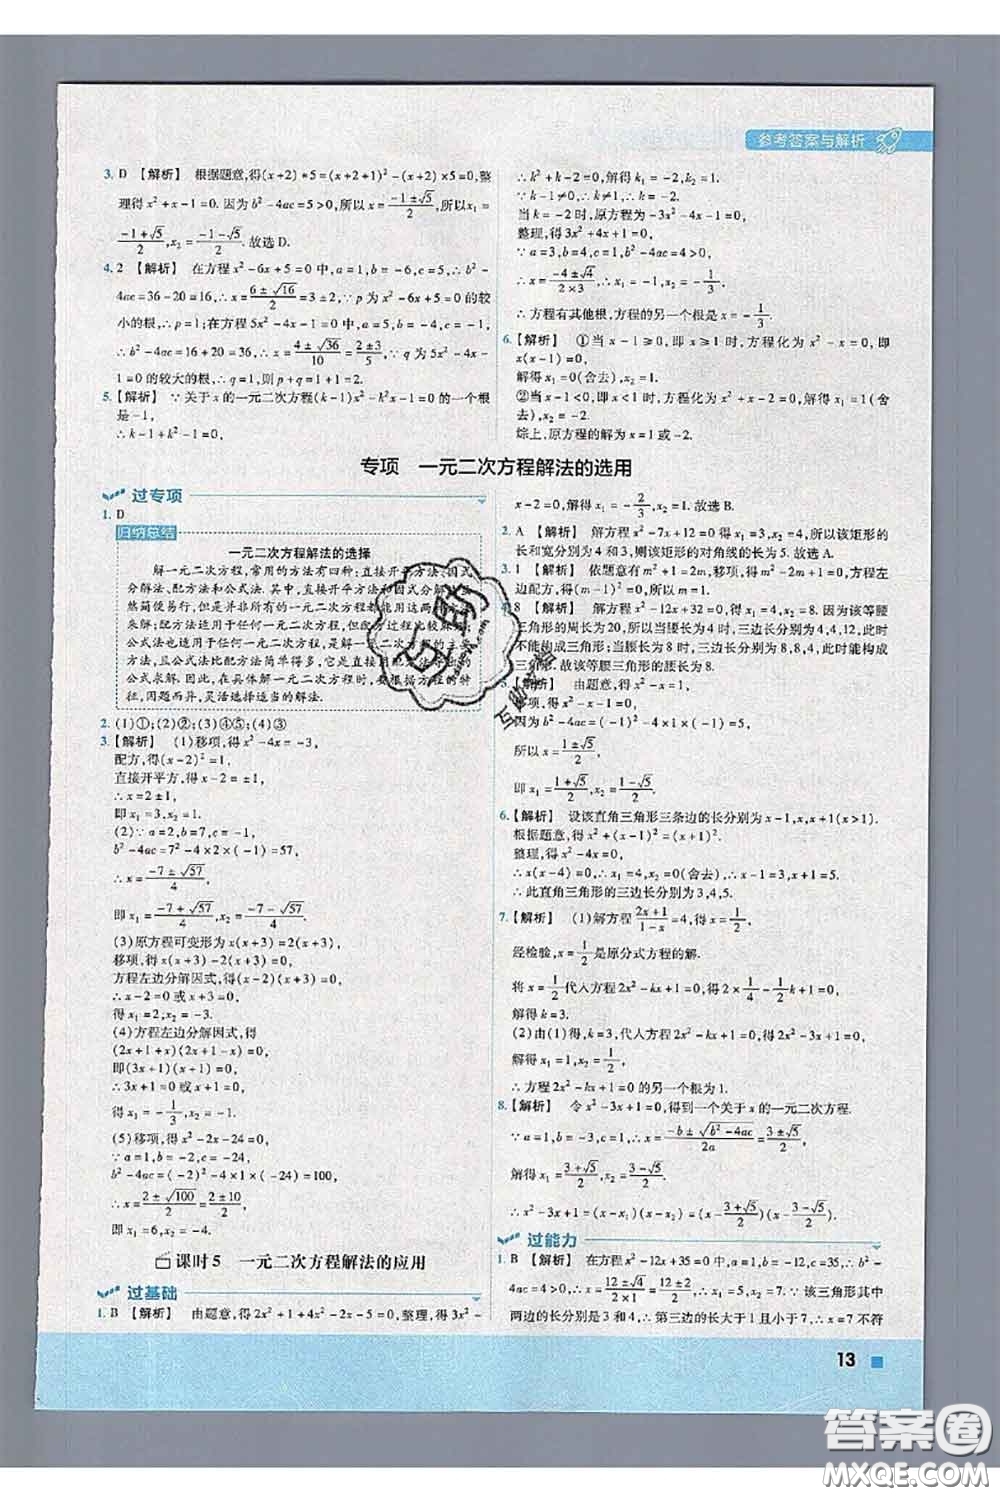 参考答案与解析
3. D 【解析】 根据题意,得(x+2)*5=(x+2+1)²-(x+2)×5=0,整
理得x²+x-1=0. 因为b²-4ac=5>0,所以x=(-1±√5)/2,所以x₁=
(-1+√5)/2,x₂=(-1-√5)/2.故选D.
4. 2 【解析】 在方程x²-6x+5=0中,a=1,b=-6,c=5,∴b²-
4ac=36-20=16,∴x=(6±√16)/2=3±2,∵p为x²-6x+5=0的较
小的根,∴p=1;在方程5x²-4x-1=0中,a=5,b=-4,c=-1,
∴b²-4ac=16+20=36,∴x=(4±√36)/10=(2±3)/5,∵q为5x²-4x-
1=0的较大的根,∴q=1,则p+q=1+1=2.
5.【解析】 ∵关于x的一元二次方程(k-1)x²-k²x-1=0的一个根
是-1,
∴k-1+k²-1=0,
∴k²+k-2=0,解得k₁=-2,k₂=1.
∵k-1≠0,∴k≠1,∴k=-2.
当k=-2时,原方程为-3x²-4x-1=0,
整理,得3x²+4x+1=0,
∵a=3,b=4,c=1,b²-4ac=4>0,
∴x=(-4±√4)/(2×3),∴x₁=-1,x₂=-1/3,
∴方程有其他根,方程的另一个根是x=-1/3.
6.【解析】 ①当x-1≥0,即x≥1时,方程化为x²-x=0,即
x(x-1)=0,
解得x₁=0(舍去),x₂=1.
②当x-1<0,即x<1时,方程化为x²+x-2=0,解得x₁=1(舍
去),x₂=-2.
综上,原方程的解为x=1或-2.
专项 一元二次方程解法的选用
过专项
1. D
归纳总结
一元二次方程解法的选择
解一元二次方程,常用的方法有四种:直接开平方法、因式
分解法、配方法和公式法.其中,直接开平方法和因式分解法虽
然简便易行,但并非所有的一元二次方程都能用这两种方法
来解;配方法适用于任何一元二次方程,但配方过程比较麻烦;
公式法也适用于任何一元二次方程,是解一元二次方程的主要
方法,且公式法比配方法简单得多,它是直接利用配方法导出的
公式求解的.因此,在具体解一元二次方程时,要根据方程的特
征,因题而异,灵活选择适当的解法.
2. (1)①;(2)②;(3)④⑤;(4)③
3.【解析】 (1)移项,得x²-4x=-3,
配方,得(x-2)²=1,
直接开平方,得x-2=±1,
∴x=2±1,
即x₁=3,x₂=1.
(2)∵a=2,b=7,c=-1,
b²-4ac=7²-4×2×(-1)=57,
∴x=(-7±√57)/4,
即x₁=(-7+√57)/4,x₂=(-7-√57)/4.
(3)原方程可变形为x(x+3)=2(x+3),
移项,得x(x+3)-2(x+3)=0,
方程左边分解因式,得(x-2)(x+3)=0,
∴x-2=0或x+3=0,
得x₁=2,x₂=-3.
(4)方程左边分解因式,得
(2x+1+x)(2x+1-x)=0,
即(3x+1)(x+1)=0,
∴3x+1=0或x+1=0,
得x₁=-1/3,x₂=-1.
(5)移项,得x²-2x-24=0,
∵a=1,b=-2,c=-24,
b²-4ac=(-2)²-4×1×(-24)=100,
∴x=(2±√100)/2=(2±10)/2,
即x₁=6,x₂=-4.
课时5 一元二次方程解法的应用
过基础
1. B 【解析】 由题意,得2x²+1+4x²-2x-5=0,整理,得3x²-
x-2=0,解得x₁=-2/3,x₂=1.故选B.
2. A 【解析】 解方程x²-7x+12=0得x₁=3,x₂=4,所以该矩形的
长和宽分别为4和3,则该矩形的对角线的长为5.故选A.
3. 1 【解析】 依题意有m²+1=2m,移项,得m²-2m=-1,方程左
边配方,得(m-1)²=0,解得m=1.
4. 8 【解析】 解方程x²-12x+32=0,得x₁=4,x₂=8.因为该等腰
三角形的周长为20,所以当腰长为4时,三边长分别为4,4,12,此时
不能构成三角形;当腰长为8时,三边长分别为8,8,4,此时能构成
三角形.故该等腰三角形的腰长为8.
5.【解析】 由题意,得x²-x-1=0,
因为b²-4ac=(-1)²-4×1×(-1)=5,
所以x=(1±√5)/2,
即x₁=(1+√5)/2,x₂=(1-√5)/2.
6.【解析】 设该直角三角形三条边的长分别为x-1,x,x+1(x>1).
根据题意,得x²+(x-1)²=(x+1)²,
整理,得x²-4x=0,
∴x(x-4)=0,∴x₁=0(舍去),x₂=4,∴x-1=3,x+1=5,
∴此直角三角形的三边长分别为3,4,5.
7.【解析】 (1)解方程(2x+1)/(1-x)=4,得x=1/2,
经检验,x=1/2是原分式方程的解.
将x=1/2代入方程2x²-kx+1=0,得2×1/4-1/2k+1=0,
解得k=3.
(2)由(1)得,k=3,代入方程2x²-kx+1=0,得2x²-3x+1=0,
解得x₁=1,x₂=1/2,
∴方程2x²-kx+1=0的另一个根为1.
8.【解析】 令x²-3x+1=0,得到一个关于x的一元二次方程.
∵a=1,b=-3,c=1,∴x=(-b±√(b²-4ac))/2a=(3±√5)/2,
解得x₁=(3+√5)/2,x₂=(3-√5)/2,
∴x²-3x+1=(x-x₁)(x-x₂)=(x-(3+√5)/2)(x-(3-√5)/2).
过能力
1. B 【解析】 在方程x²-12x+35=0中,a=1,b=-12,c=35,b²-
4ac=4>0,∴x=(12±√4)/(2×1)=(12±2)/2,∴x₁=5,x₂=7.∵该三角形其中
两边的长分别是3和4,∴第三边的长大于1且小于7,∴x=7不符
13
互助
互助
答案圈
MXQE.COM